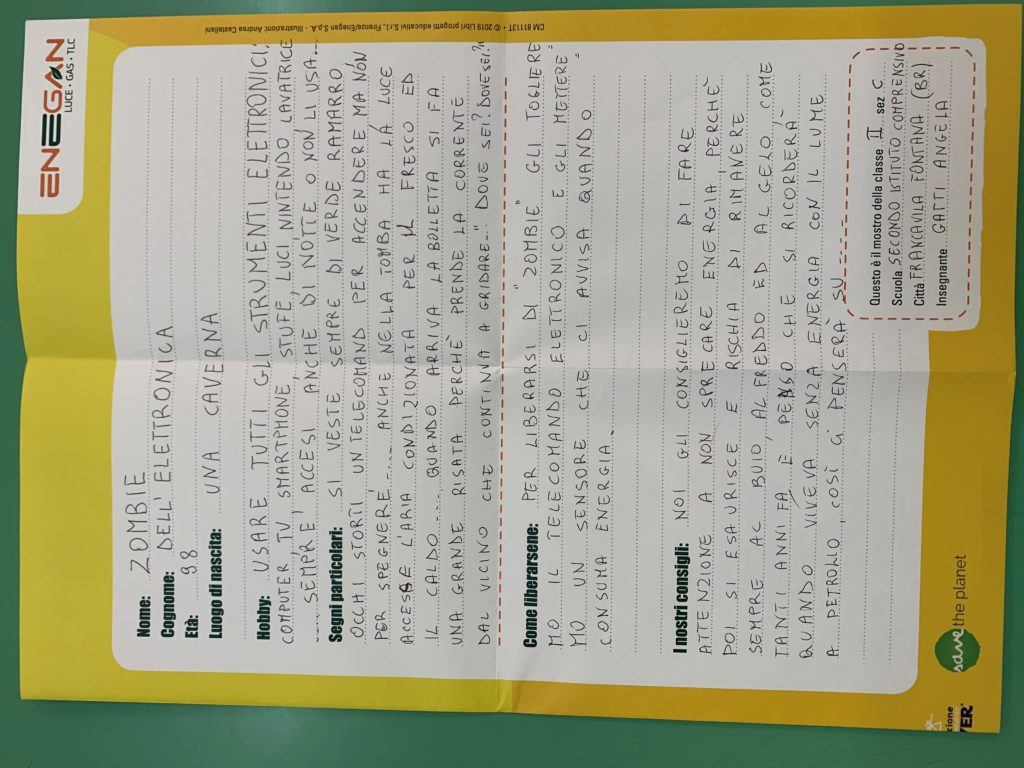 ENEGAN
LUCE • GAS • TLC
CM 81113Y • © 2019 Libri progetti educativi S.r.l., Firenze/Enegan S.p.A. - Illustrazioni: Andrea Castellani
Nome: ZOMBIE
Cognome: DELL'ELETTRONICA
Età: 98
Luogo di nascita: UNA CAVERNA
Hobby: USARE TUTTI GLI STRUMENTI ELETTRONICI,
COMPUTER, TV, SMARTPHONE STUFE, LUCI, NINTENDO LAVATRICE
SEMPRE ACCESI ANCHE DI NOTTE O NON LI USA...
Segni particolari: SI VESTE SEMPRE DI VERDE RAMARRO
OCCHI STORTI UN TELECOMAND PER ACCENDERE MA NON
PER SPEGNERE..... ANCHE NELLA TOMBA HA LA LUCE
ACCESA E L'ARIA CONDIZIONATA PER IL FRESCO ED
IL CALDO..... QUANDO ARRIVA LA BOLLETTA SI FA
UNA GRANDE RISATA PERCHÈ PRENDE LA CORRENTE
DAL VICINO CHE CONTINUA A GRIDARE.. " DOVE SEI? DOVE SEI?"
Come liberarsene: PER LIBERARSI DI "ZOMBIE" GLI TOGLIERE
MO IL TELECOMANDO ELETTRONICO E GLI METTERE=
MO UN SENSORE CHE CI AVVISA QUANDO
CONSUMA ENERGIA.
I nostri consigli: NOI GLI CONSIGLIEREMO DI FARE
ATTENZIONE A NON SPRECARE ENERGIA, PERCHÈ
POI SI ESAURISCE E RISCHIA DI RIMANERE
SEMPRE AL BUIO, AL FREDDO ED AL GELO, COME
TANTI ANNI FÀ E PENSO CHE SI RICORDERÀ
QUANDO VIVEVA SENZA ENERGIA CON IL LUME
A PETROLIO, COSÌ CI PENSERÀ SU------
Questo è il mostro della classe II sez C
Scuola SECONDO ISTITUTO COMPRENSIVO
Città FRANCAVILA FONTANA (BR)
Insegnante GATTI ANGELA
save the planet